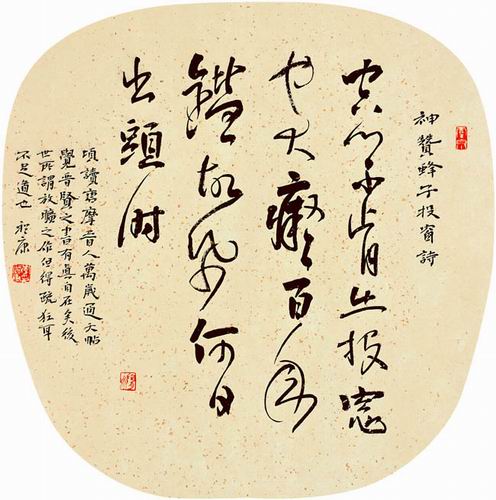 神贊蜂子投窗詩
空門不肯出投窗
也大癡百年
鑽故帋何日
出頭時
頃讀唐摩晉人萬歲通天帖
覺晉賢之書有真自在矣後
世所謂放曠之作但得疏狂耳
不足道也